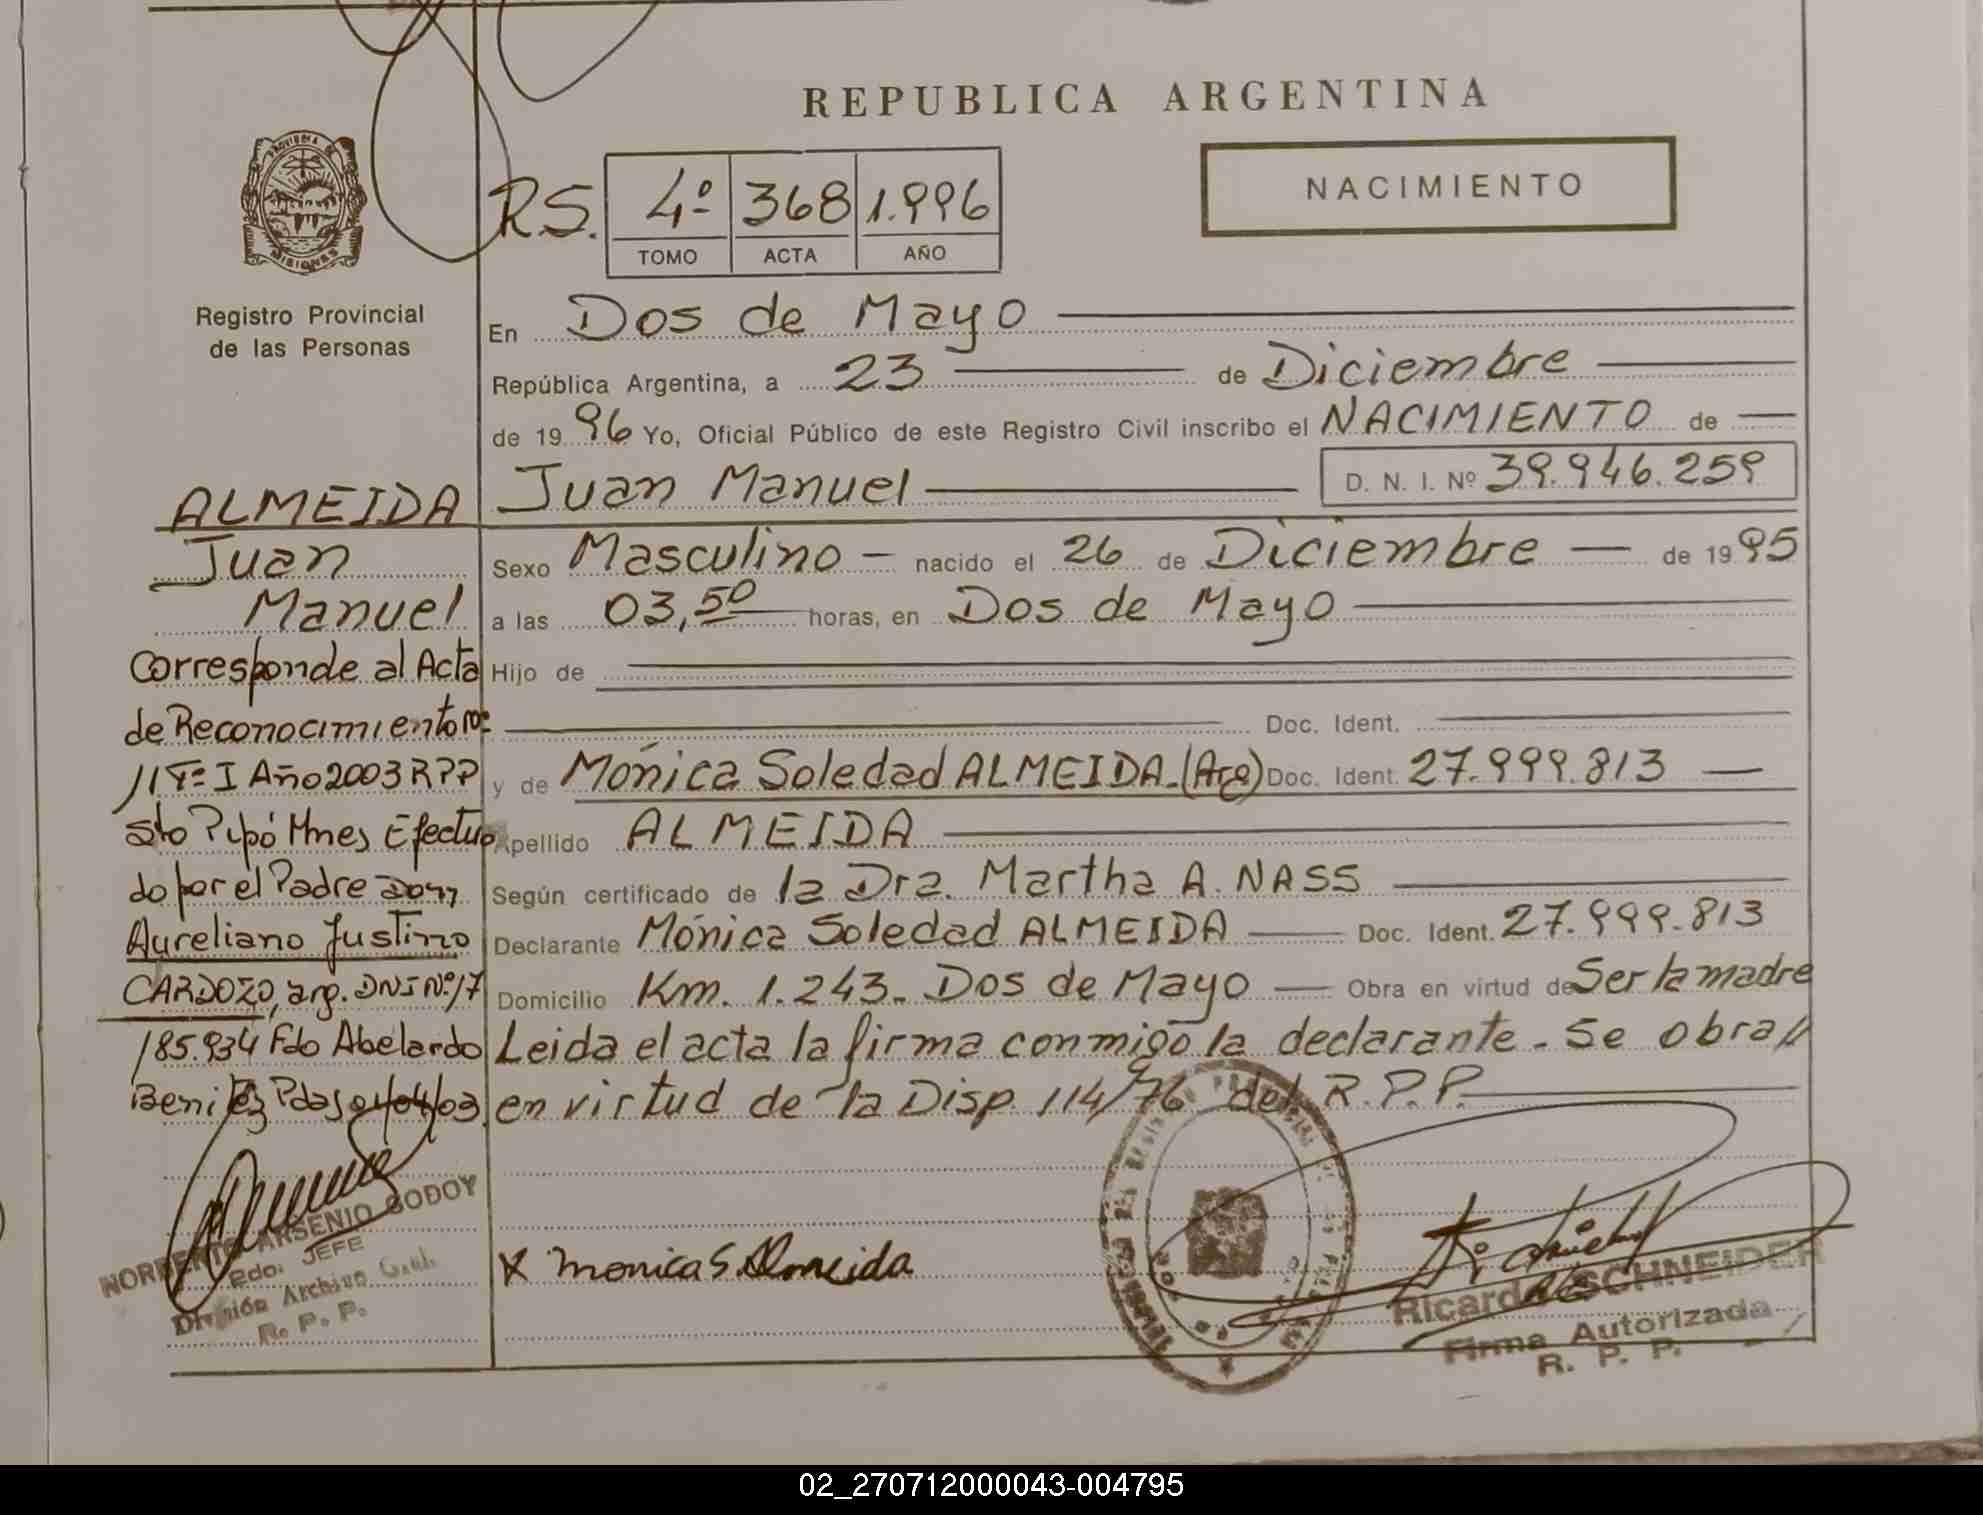 REPUBLICA ARGENTINA
NACIMIENTO
PROVINCIA DE
MISIONES
Registro Provincial
de las Personas
R.S. 4º 368 1.996
TOMO ACTA AÑO
En Dos de Mayo
República Argentina, a 23 de Diciembre
de 1996 Yo, Oficial Público de este Registro Civil inscribo el NACIMIENTO de
Juan Manuel D. N. I. Nº 39.946.259
Sexo Masculino - nacido el 26 de Diciembre - de 1995
a las 03,50 horas, en Dos de Mayo
Hijo de
Doc. Ident.
y de Mónica Soledad ALMEIDA.(Arg) Doc. Ident. 27.999.813
Apellido ALMEIDA
Según certificado de la Dra. Martha A. NASS
Declarante Mónica Soledad ALMEIDA Doc. Ident. 27.999.813
Domicilio Km. 1.243. Dos de Mayo - Obra en virtud de Ser la madre
Leida el acta la firma conmigo la declarante. Se obra//
en virtud de la Disp. 114/76 del R.P.P.
X Monica S. Almeida
Ricardo SCHNEIDER
Firma Autorizada
R. P. P.
ALMEIDA
Juan
Manuel
Corresponde al Acta
de Reconocimiento nº
11 Tº I Año 2003 RPP
Sto Pipó Mnes Efectua
do por el Padre Don
Aureliano Justino
CARDOZO, arg. DNI Nº 17
185.934 Fdo Abelardo
Benitez Pdas 01/04/03.
NORBERTO ARSENIO GODOY
2do. JEFE
División Archivo Gral.
R. P. P.
02_270712000043-004795